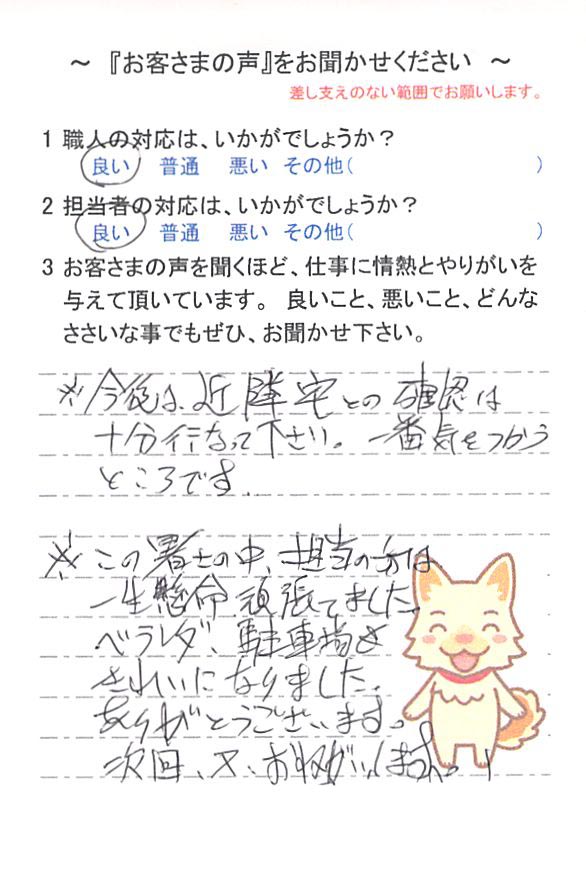 ～ 『お客さまの声』をお聞かせください ～
差し支えのない範囲でお願いします。
1 職人の対応は、いかがでしょうか？
良い 普通 悪い その他( )
2 担当者の対応は、いかがでしょうか？
良い 普通 悪い その他( )
3 お客さまの声を聞くほど、仕事に情熱とやりがいを
与えて頂いています。 良いこと、悪いこと、どんな
ささいな事でもぜひ、お聞かせ下さい。
※今後は、近隣宅との確認は
十分行なって下さい。一番気をつかう
ところです。
※この暑さの中、担当の方は
一生懸命頑張てました。
ベランダ、駐車場も
きれいになりました。
ありがとうございます。
次回、又、お願いします。